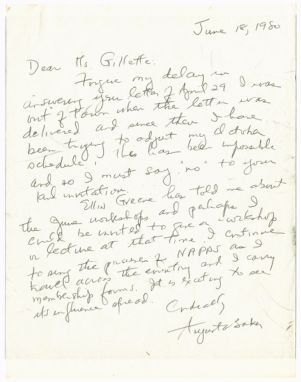 June 18, 1980
Dear Ms Gillette:
Forgive my delay in
answering your letter of April 29 I was
out of town when the letter was
delivered and since then I have
been trying to adjust my
schedule. This has been impossible
and so I must say "no" to your
kind invitation.
Ellin Greene has told me about
the workshops and perhaps I
could be invited to give a workshop
or lecture at that time. I continue
to sing the praises of NAPPS as I
travel across the country and I carry
membership forms. It is exciting to see
its influence spread.
Cordially
Augusta Baker